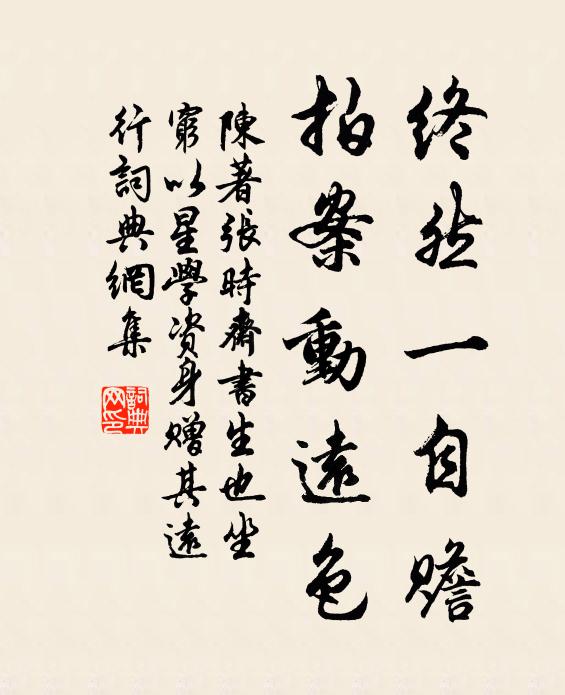 終然一自贍
拍案動遠色
陳著張時齋書生也坐
窮以星學资身贈其遠
行詞典網集
詞典
网印